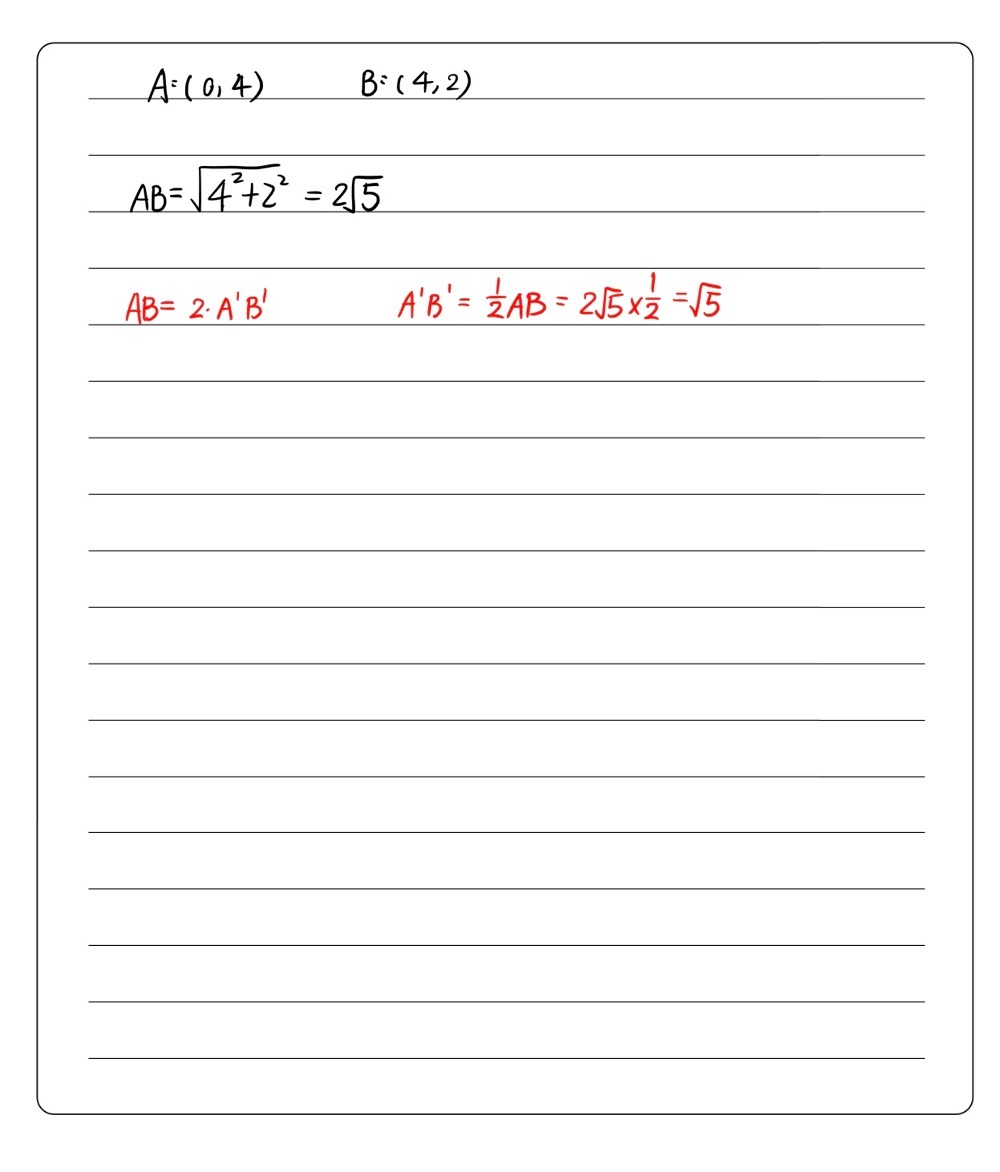 A:(0,4) B:(4,2)
AB=√(4²+2²) = 2√5
AB= 2·A'B' A'B' = 1/2 AB = 2√5 x 1/2 = √5